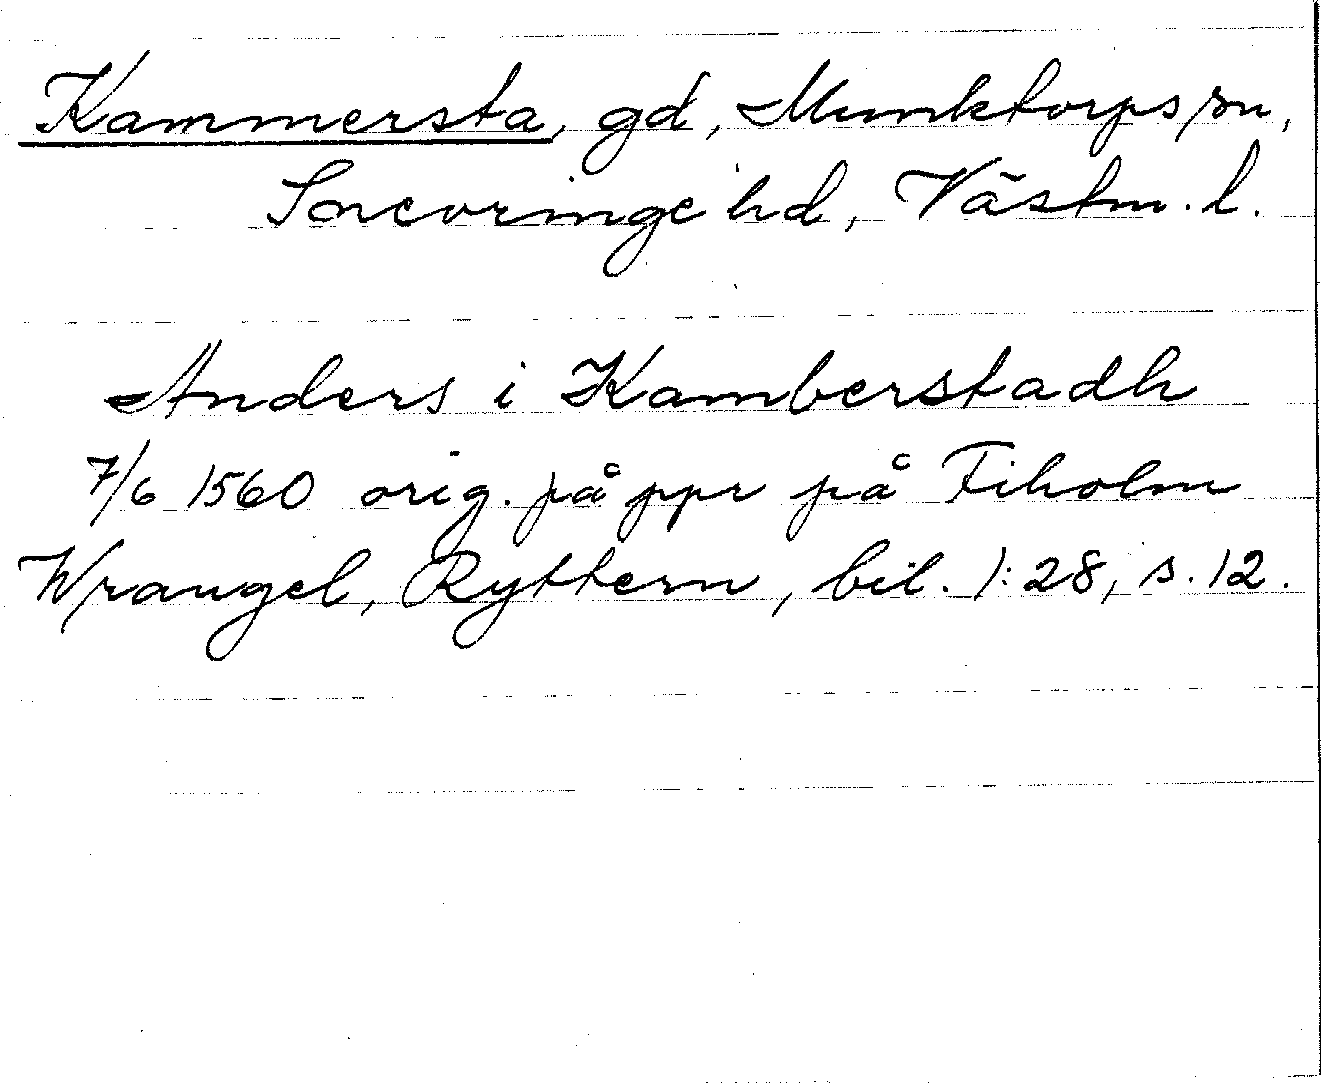 Kammersta, gd, Munktorps sn,
Snevringe hd, Västm. l.
Anders i Kamberstadh
7/6 1560 orig. på ppr på Fiholm
Wrangel, Ryttern, bil. 1:28, s. 12.